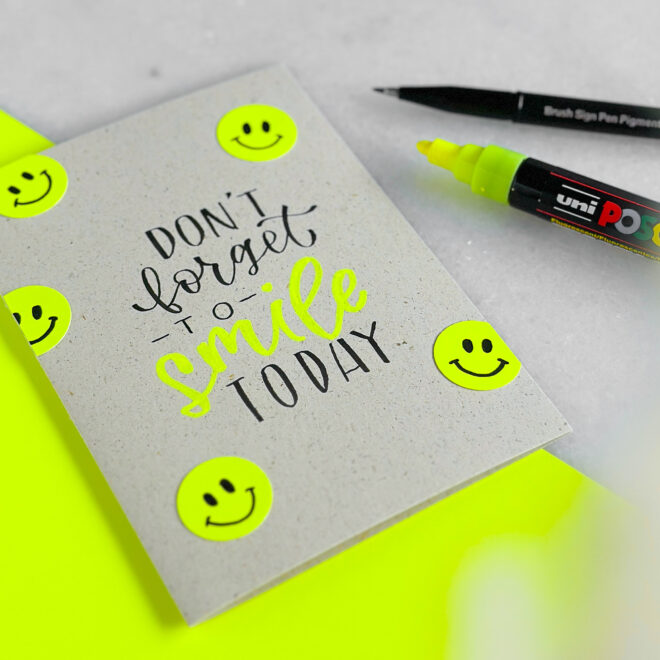 DON'T
forget
-TO-
smile
TODAY
Brush Sign Pen Pigment
uni POSC